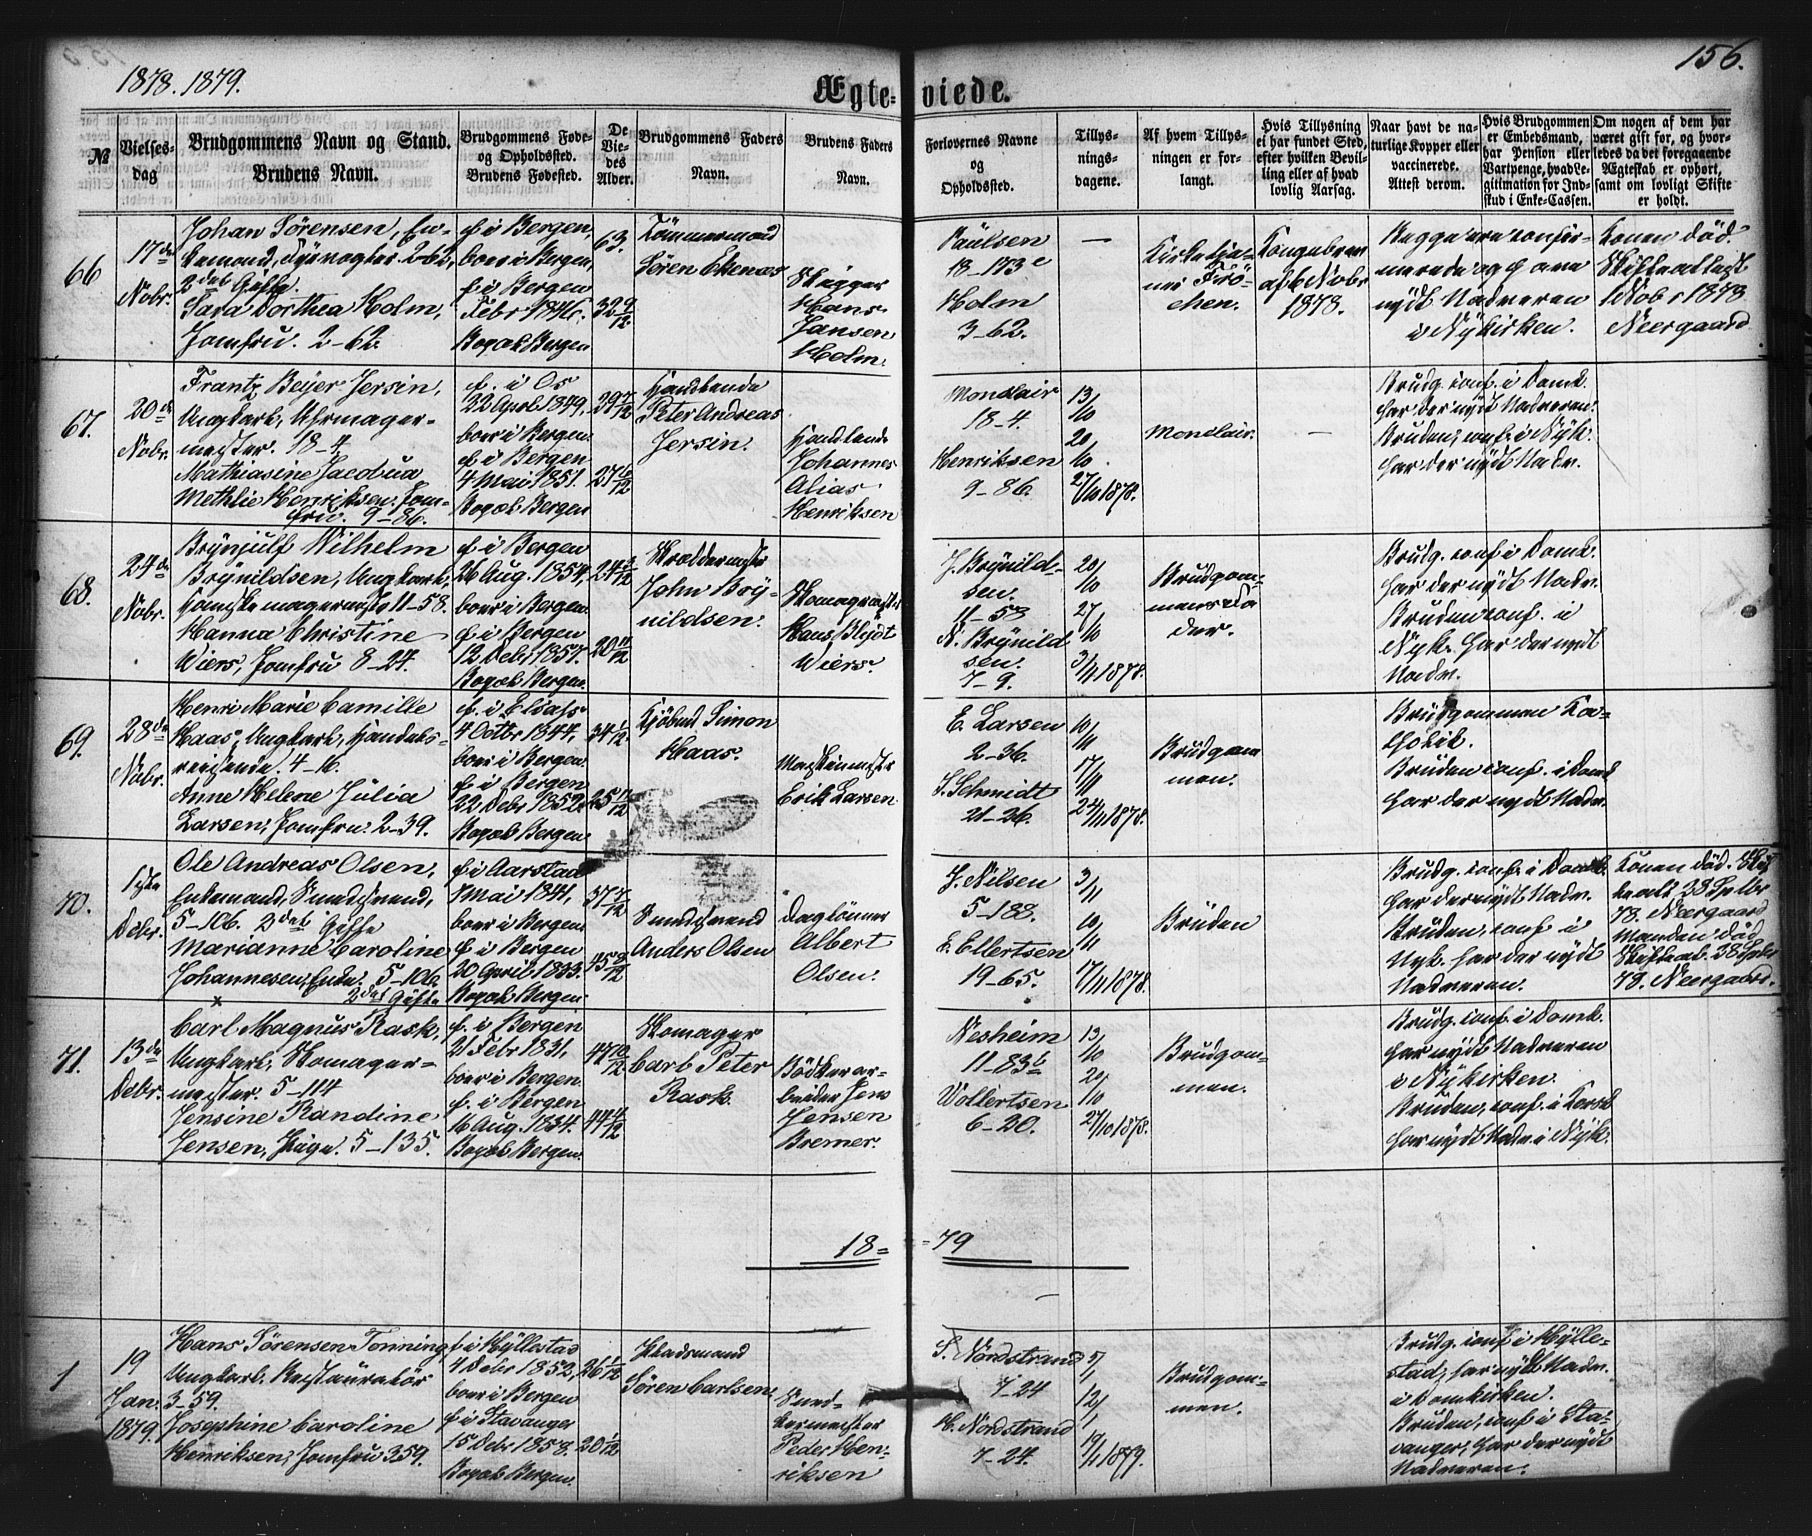 1878. 1879.
Ægteviede.
156.
№
Vielses-
dag
Brudgommens Navn og Stand.
Brudens Navn.
Brudgommens Føde-
og Opholdssted.
Brudens Fødested.
De
Vie-
des
Alder.
Brudgommens Faders
Navn.
Brudens Faders
Navn.
Forlovernes Navne
og
Opholdssted.
Tillys-
nings-
dagene.
Af hvem Tillys-
ningen er for-
langt.
Hvis Tillysning
ei har fundet Sted,
efter hvilken Bevil-
ling eller af hvad
lovlig Aarsag.
Naar havt de na-
turlige Kopper eller
vaccinerede.
Attest derom.
Hvis Brudgommen
er Embedsmand,
har Pension eller
Vartpenge, hvad Le-
gitimation for Ind-
skud i Enke-Cassen.
Om nogen af dem har
været gift før, og hvor-
ledes da det foregaaende
Ægteskab er ophørt,
samt om lovligt Skifte
er holdt.
66
17de
Nobr.
Johan Sørensen, En-
kemand, 2-62,
2det Gifte.
Sara Dorthea Holm,
Jomfru. 2-62.
f. i Bergen,
boer i Bergen,
f. i Bergen
Febr 1846.
Bopæl Bergen
63.
32 9/12
Tømmermand
Sören
Skipper
Hans
Jansen
Holm.
Paulsen
18-173c
Holm
3-62.
—
Kongebrev
af 6 Nobr
1878.
Begge ere confir-
merede og have
nydt Nadveren
i Nykirken.
Konen død.
Skifteattest
1 Nobr 1878
Neergaard
67.
20de
Nobr.
Frantz Beyer Jersin,
Ungkarl, Uhrmager-
mester. 18-4
Mathiasine Jacobua
Methlie Henriksen, Jom-
fru. 9-86.
f. i Os
22 April 1849,
boer i Bergen.
f. i Bergen
4 Mai 1851.
Bopæl Bergen
29 7/12
27 6/12
Handlende
Peter Andreas
Jersin.
Handlende
Johannes
Alias
Henriksen
Monclair
18-4.
Henriksen
9-86.
13/10
20/10
27/10 1878.
Monclair.
—
Brudg. conf. i Domk.
har der nydt Nadveren.
Bruden, conf. i Nyk.
har der nydt Nadv.
68.
24de
Nobr.
Brynjulf Wilhelm
Brynildsen, Ungkarl,
Handskemagermester 11-58.
Hanna Christine
Wiers, Jomfru 8-27.
f. i Bergen
26 Aug. 1854,
boer i Bergen.
f. i Bergen
12 Debr. 1857.
Bopæl Bergen.
24 3/12
20 11/12
Skræddermester
John Bry-
nildsen.
Skomagermester
Hans Blydt
Wiers.
J. Brynild-
sen.
11-58
N. Brynild
sen.
7-9.
20/10
27/10
3/11 1878.
Brudgom-
mens Fa
der.
Brudg. conf. i Domk.
har der nydt Nadv.
Bruden conf. i
Nyk. har der nydt
Nadv.
69.
28de
Nobr.
Henri Marie Camille
Haas, Ungkarl, Handels-
reisende. 4-16.
Anne Helene Julia
Larsen, Jomfru. 2-39.
f. i Elsass
4 Octbr 1844,
boer i Bergen.
f. i Bergen
22 Debr 1852.
Bopæl Bergen.
34 1/12
25 11/12
Kjøbmd Simon
Haas.
Maskinmester
Erik Larsen
E. Larsen
2-36.
S. Schmidt
21-26.
10/11
17/11
24/11 1878.
Brudgom
men.
Brudgommen Ka-
tholik.
Bruden conf. i Domk
har der nydt Nadv.
70.
1ste
Debr.
Ole Andreas Olsen,
Enkemand, Smedsvend,
5-106. 2det Gifte
Marianne Caroline
Johannesen, Enke. 5-106.
2det Gifte
f. i Aarstad
Mai 1841,
boer i Bergen.
f. i Bergen
20 April 1833.
Bopæl Bergen.
37 7/12
45 8/12
Smedsvend
Anders Olsen
Daglønner
Albert
Olsen.
J. Nilsen
5-188.
E. Ellertsen
19-65.
3/11
10/11
17/11 1878.
Bruden
Brudg. conf. i Domk.
har der nydt Nadv.
Bruden, conf. i
Nyk. har der nydt
Nadveren.
Konen død. Skif
teatt. 28 Septbr
78. Neergaard
Manden død
Skifteatt. 28 Septbr
78. Neergaard.
71.
13de
Debr.
x
Carl Magnus Rask,
Ungkarl, Skomager-
mester. 5-114
Jensine Randine
Jensen, Pige. 5-135.
f. i Bergen
21 Febr 1831,
boer i Bergen.
f. i Bergen
16 Aug. 1834.
Bopæl Bergen.
47 10/12
44 4/12
Skomager
Carl Peter
Rask.
Bødkerar-
beider Jens
Jensen
Bremer.
Nesheim
11-83b
Wollertsen
6-20.
13/10
20/10
27/10 1878.
Brudgom-
men.
Brudg. conf. i Domk.
har nydt Nadveren
i Nykirken.
Bruden, conf. i Korsk
har nydt Nadv. i Nyk.
18 = = 79
1
19
Jan.
1879.
Hans Sørensen Tonning,
Ungkarl. Restauratør
3-59.
Josephine Caroline
Henriksen, Jomfru 3 59.
f. i Hyllestad
4 Debr 1852,
boer i Bergen
f. i Stavanger
15 Debr 1858.
Bopæl Bergen.
26 1/12
20 1/12
Pladsmand
Søren Carlsen.
Peder Hen-
riksen
S. Nordstrand
7-24
H. Nordstrand
7-24.
5/1
12/1
19/1 1879.
Brudgom-
men.
Brudg. conf. i Hylle-
stad, har nydt Nadv.
i Domkirken.
Bruden, conf. i Sta-
vanger, har der nydt
Nadveren.